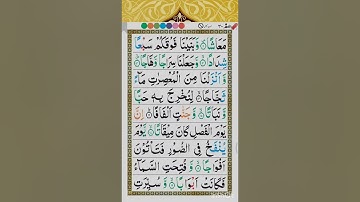 مَعَاشًا ۪ وَّبَنَيْنَا فَوْقَكُمْ سَبْعًا
شِدَادًا ۙ وَّجَعَلْنَا سِرَاجًا وَّهَّاجًا ۪ ۙ
وَّاَنْزَلْنَا مِنَ الْمُعْصِرٰتِ مَآءً
ثَجَّاجًا ۙ لِّنُخْرِجَ بِهٖ حَبًّا
وَّنَبَاتًا ۙ وَّجَنّٰتٍ اَلْفَافًا ؕ اِنَّ
يَوْمَ الْفَصْلِ كَانَ مِيْقَاتًا ۙ يَّوْمَ
يُنْفَخُ فِي الصُّوْرِ فَتَاْتُوْنَ
اَفْوَاجًا ۙ وَّفُتِحَتِ السَّمَآءُ
فَكَانَتْ اَبْوَابًا ۙ وَّسُيِّرَتِ